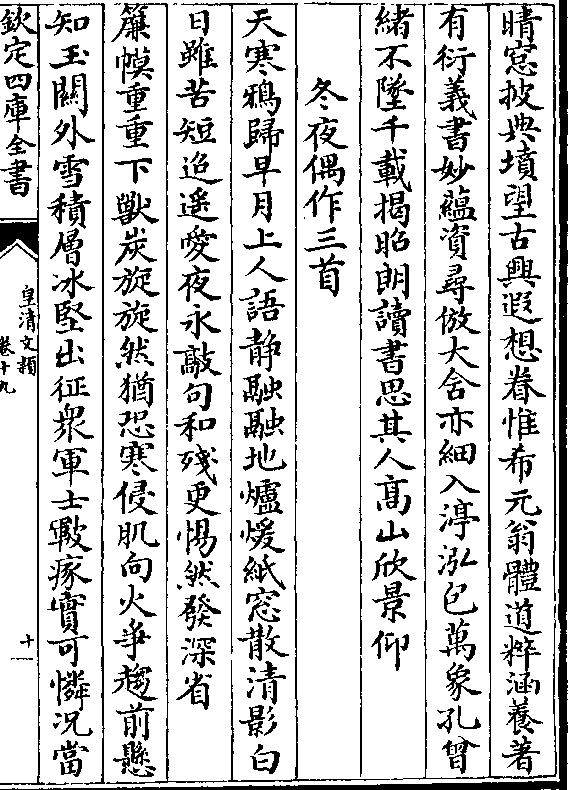 晴窓披典墳望古興遐想眷惟希元翁體道粹涵養著
有衍義書妙蘊資尋倣大含亦細入渟泓包萬象孔曾
緒不墜千載揭昭朗讀書思其人高山欣景仰
冬夜偶作三首
天寒鴉歸早月上人語静融融地爐煖紙窓散清影白
日雖苦短迢遥愛夜永敲句和殘更惕然發深省
簾幙重重下獸炭旋旋然猶恐寒侵肌向火爭趨前懸
知玉關外雪積層冰堅出征衆軍士皸瘃實可憐况當
欽定四庫全書
皇清文穎
卷十九
十一